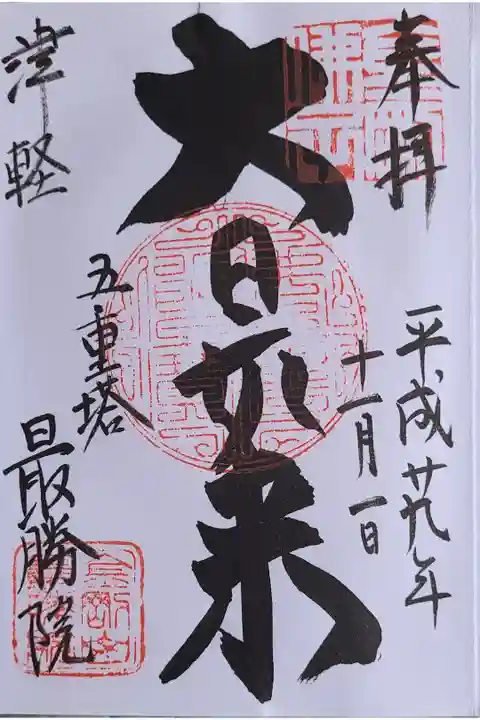 奉拝
平成廿九年
十一月一日
大日如来
五重塔
津軽
最勝院